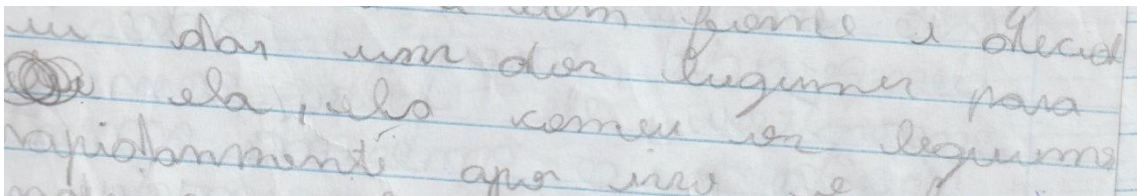 com fome e decid
iu dar um dos legumes para
ela, ela comeu os legumes
rapidanmente apos isso